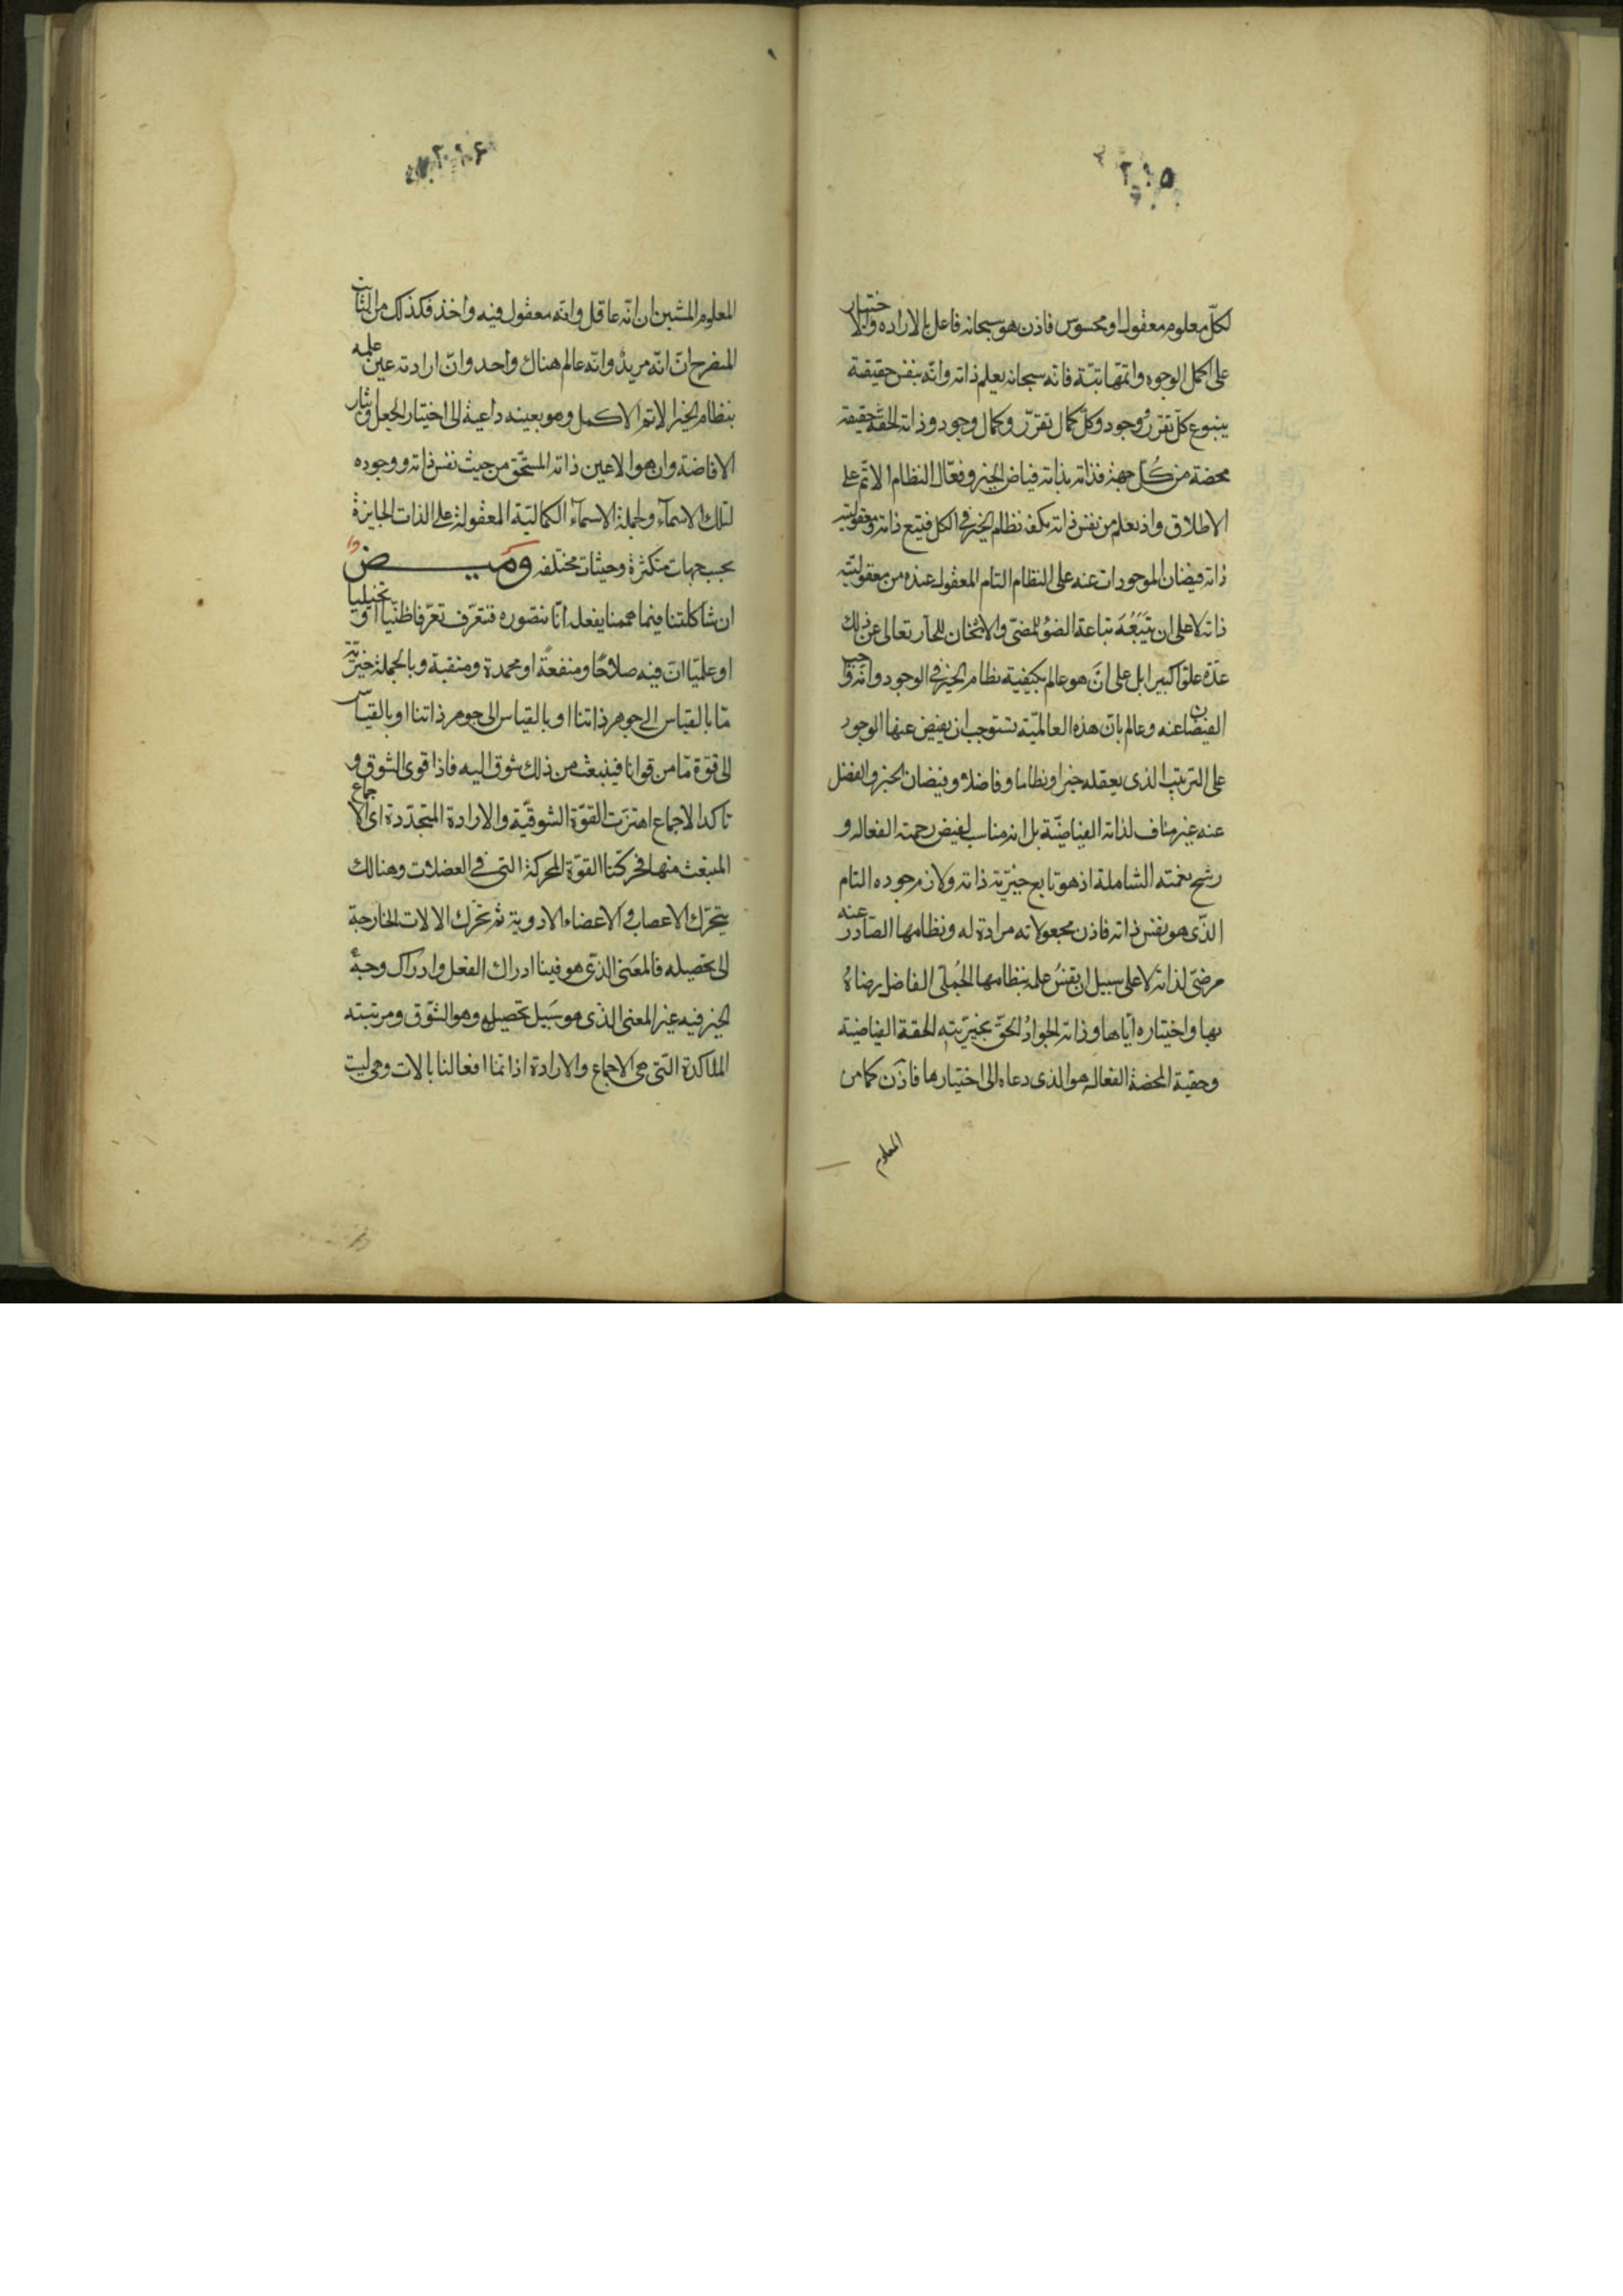 ٢٠٥
لكلّ معلوم معقول او محسوس فاذن هو سبحانه فاعل بالارادة والاختيار
على اكمل الوجوه واتمّها بتّة فانّه سبحانه يعلم ذاته وانّه بنفس حقيقته
ينبوع كلّ تقرّر ووجود وكلّ كمال تقرّر وكمال وجود وذاته الحقّة حقيقة
محضة من كلّ جهة فذاته بذاته فياض الخير وفعّال النظام الاتمّ على
الاطلاق واذ يعلم من نفس ذاته كيف نظام الخير في الكل فيتبع ذاته ومعقوليته
ذاته فيضان الموجودات عنه على النظام التام المعقول عنده من معقوليّته
ذاته لا على ان يتبعه تباعة الضوء للمضئ والاسخان للحارّ تعالى عن ذلك
عدّة علوّا كبيرا بل على انّ هو عالم بكيفية نظام الخير في الوجود وانّه واجب
الفيضان عنه وعالم بانّ هذه العالميّة تستوجب ان يفيض عنها الوجود
على الترتيب الذى يعقله خيرا ونظاما وفاضلا وفيضان الخير والفضل
عنه غير مناف لذاته الفياضيّة بل انه مناسب لفيض رحمته الفعالة و
رشح نعمته الشاملة اذ هو تابع خيريّة ذاته ولازم وجوده التام
الذّى هو نفس ذاته فاذن مجعولاته مرادة له ونظامها الصّادر عنه
مرضىّ لذاته لا على سبيل ان نفس علمه بنظامها الجُملىّ الفاضل رضاه
بها واختياره ايّاها وذاته الجوادُ الحقّ بخيريّته الحقة الفياضية
وحقيته المحضة الفعالة هو الذى دعاه الى اختيارها فاذن كما من
المعلوم
٢٠٦
المعلوم المتبين ان انّه عاقل وانّه معقول فيه واحد فكذلك من الثابت
المنصرح انّ انّه مريد وانّه عالم هناك واحد وانّ ارادته عين علمه
بنظام الخير الاتم الاكمل وهو بعينه داعية الى اختيار الجعل وايثار
الافاضة وان هو الا عين ذاته المستحق من حيث نفس ذاته ووجوده
لتلك الاسمآء ولجملة الاسمآء الكماليّة المعقولة على الذات الجايزة
بحسب جهات متكثرة وحيثيات مختلفه وميض
ان شاكلتنا فيما هممنا بفعله انّا نتصوره فنتعرّف تعرّفا ظنّيا او تخييليا
او علميّا انّ فيه صلاحًا ومنفعةً او محمدة ومنقبة وبالجملة خيريّة
مّا بالقياس الى جوهر ذاتنا او بالقياس الى جوهر ذاتنا او بالقياس
الى قوّة مّا من قوانا فينبعث من ذلك شوق اليه فاذا قوى الشوق و
تاكد الاجماع اهتزت القوّة الشوقيّة والارادة المتجدّدة اى الاجماع
المنبعث منها فحركتا القوّة المحركة التى في العضلات وهنالك
يتحرّك الاعصاب والاعضاء الادوية ثم تحرك الالات الخارجة
الى تحصيله فالمعنى الذّى هو فينا ادراك الفعل وادراك وجه
الخير فيه غير المعنى الذى هو سبيل تحصيله وهو الشّوق ومرتبته
المتاكدة التّى هى الاجماع والارادة اذ انّما افعالنا بالات وهى ليت